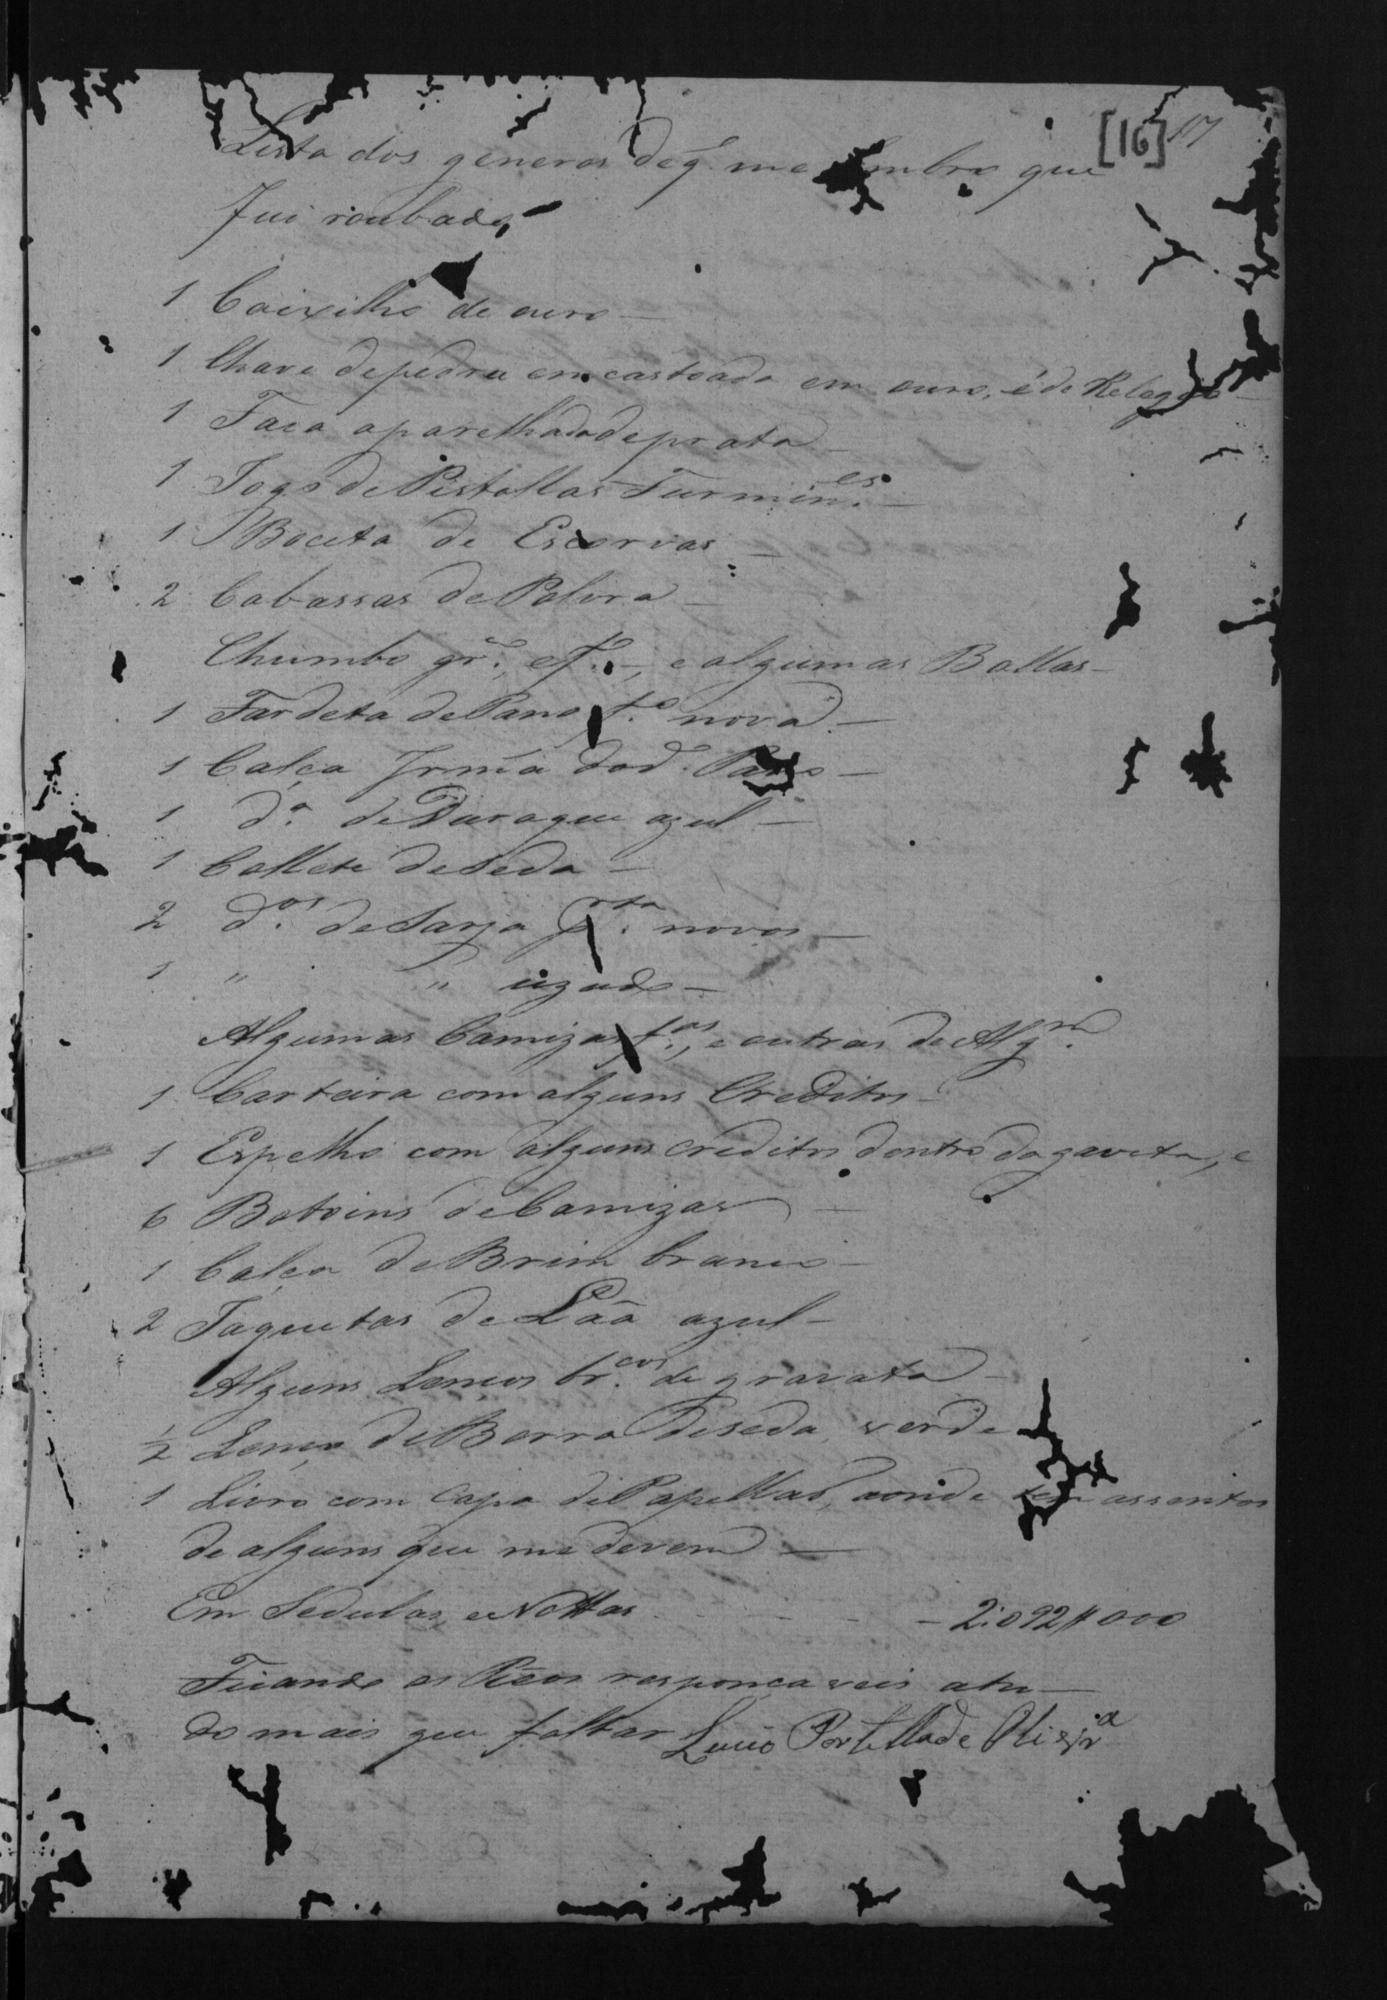 [16] 17
Lista dos generos de q. me lembro que
fui roubado,
1 Caixilho de ouro —
1 Chave de pedra emcastoada em ouro, é de Relogio —
1 Faca aparelhada de prata —
1 Jogo de Pistollas Furmin.es —
1 Boceta de Escorvas —
2 Cabassas de Polvra —
Chumbo gr.o, e f.o —, e algumas Ballas —
1 Fardeta de Pano f.o nova —
1 Calça Irmãa do d.o Pano —
1 d.a de Duraque azul —
1 Collete de Seda —
2 d.os de Sarja novos —
1 " " uzado —
Algumas Camizas f.as, e outras de Alg.m
1 Carteira com alguns Creditos —
1 Espelho com alguns creditos dentro da gaveta, e
6 Botoins de Camizas —
1 Calça de Brim branco —
2 Jaquetas de Lãa azul —
Alguns Lenços br.cos de gravata —
1/2 Lenço de Borra de seda verde
1 Livro com Capa de Papellão, aonde tem assentos
de alguns que me devem —
Em Sedulas, e Nottas - - - - 2:092#000
Ficando os Réos responçaveis atu—
do mais que faltar Lucio Portella de Olivr.a